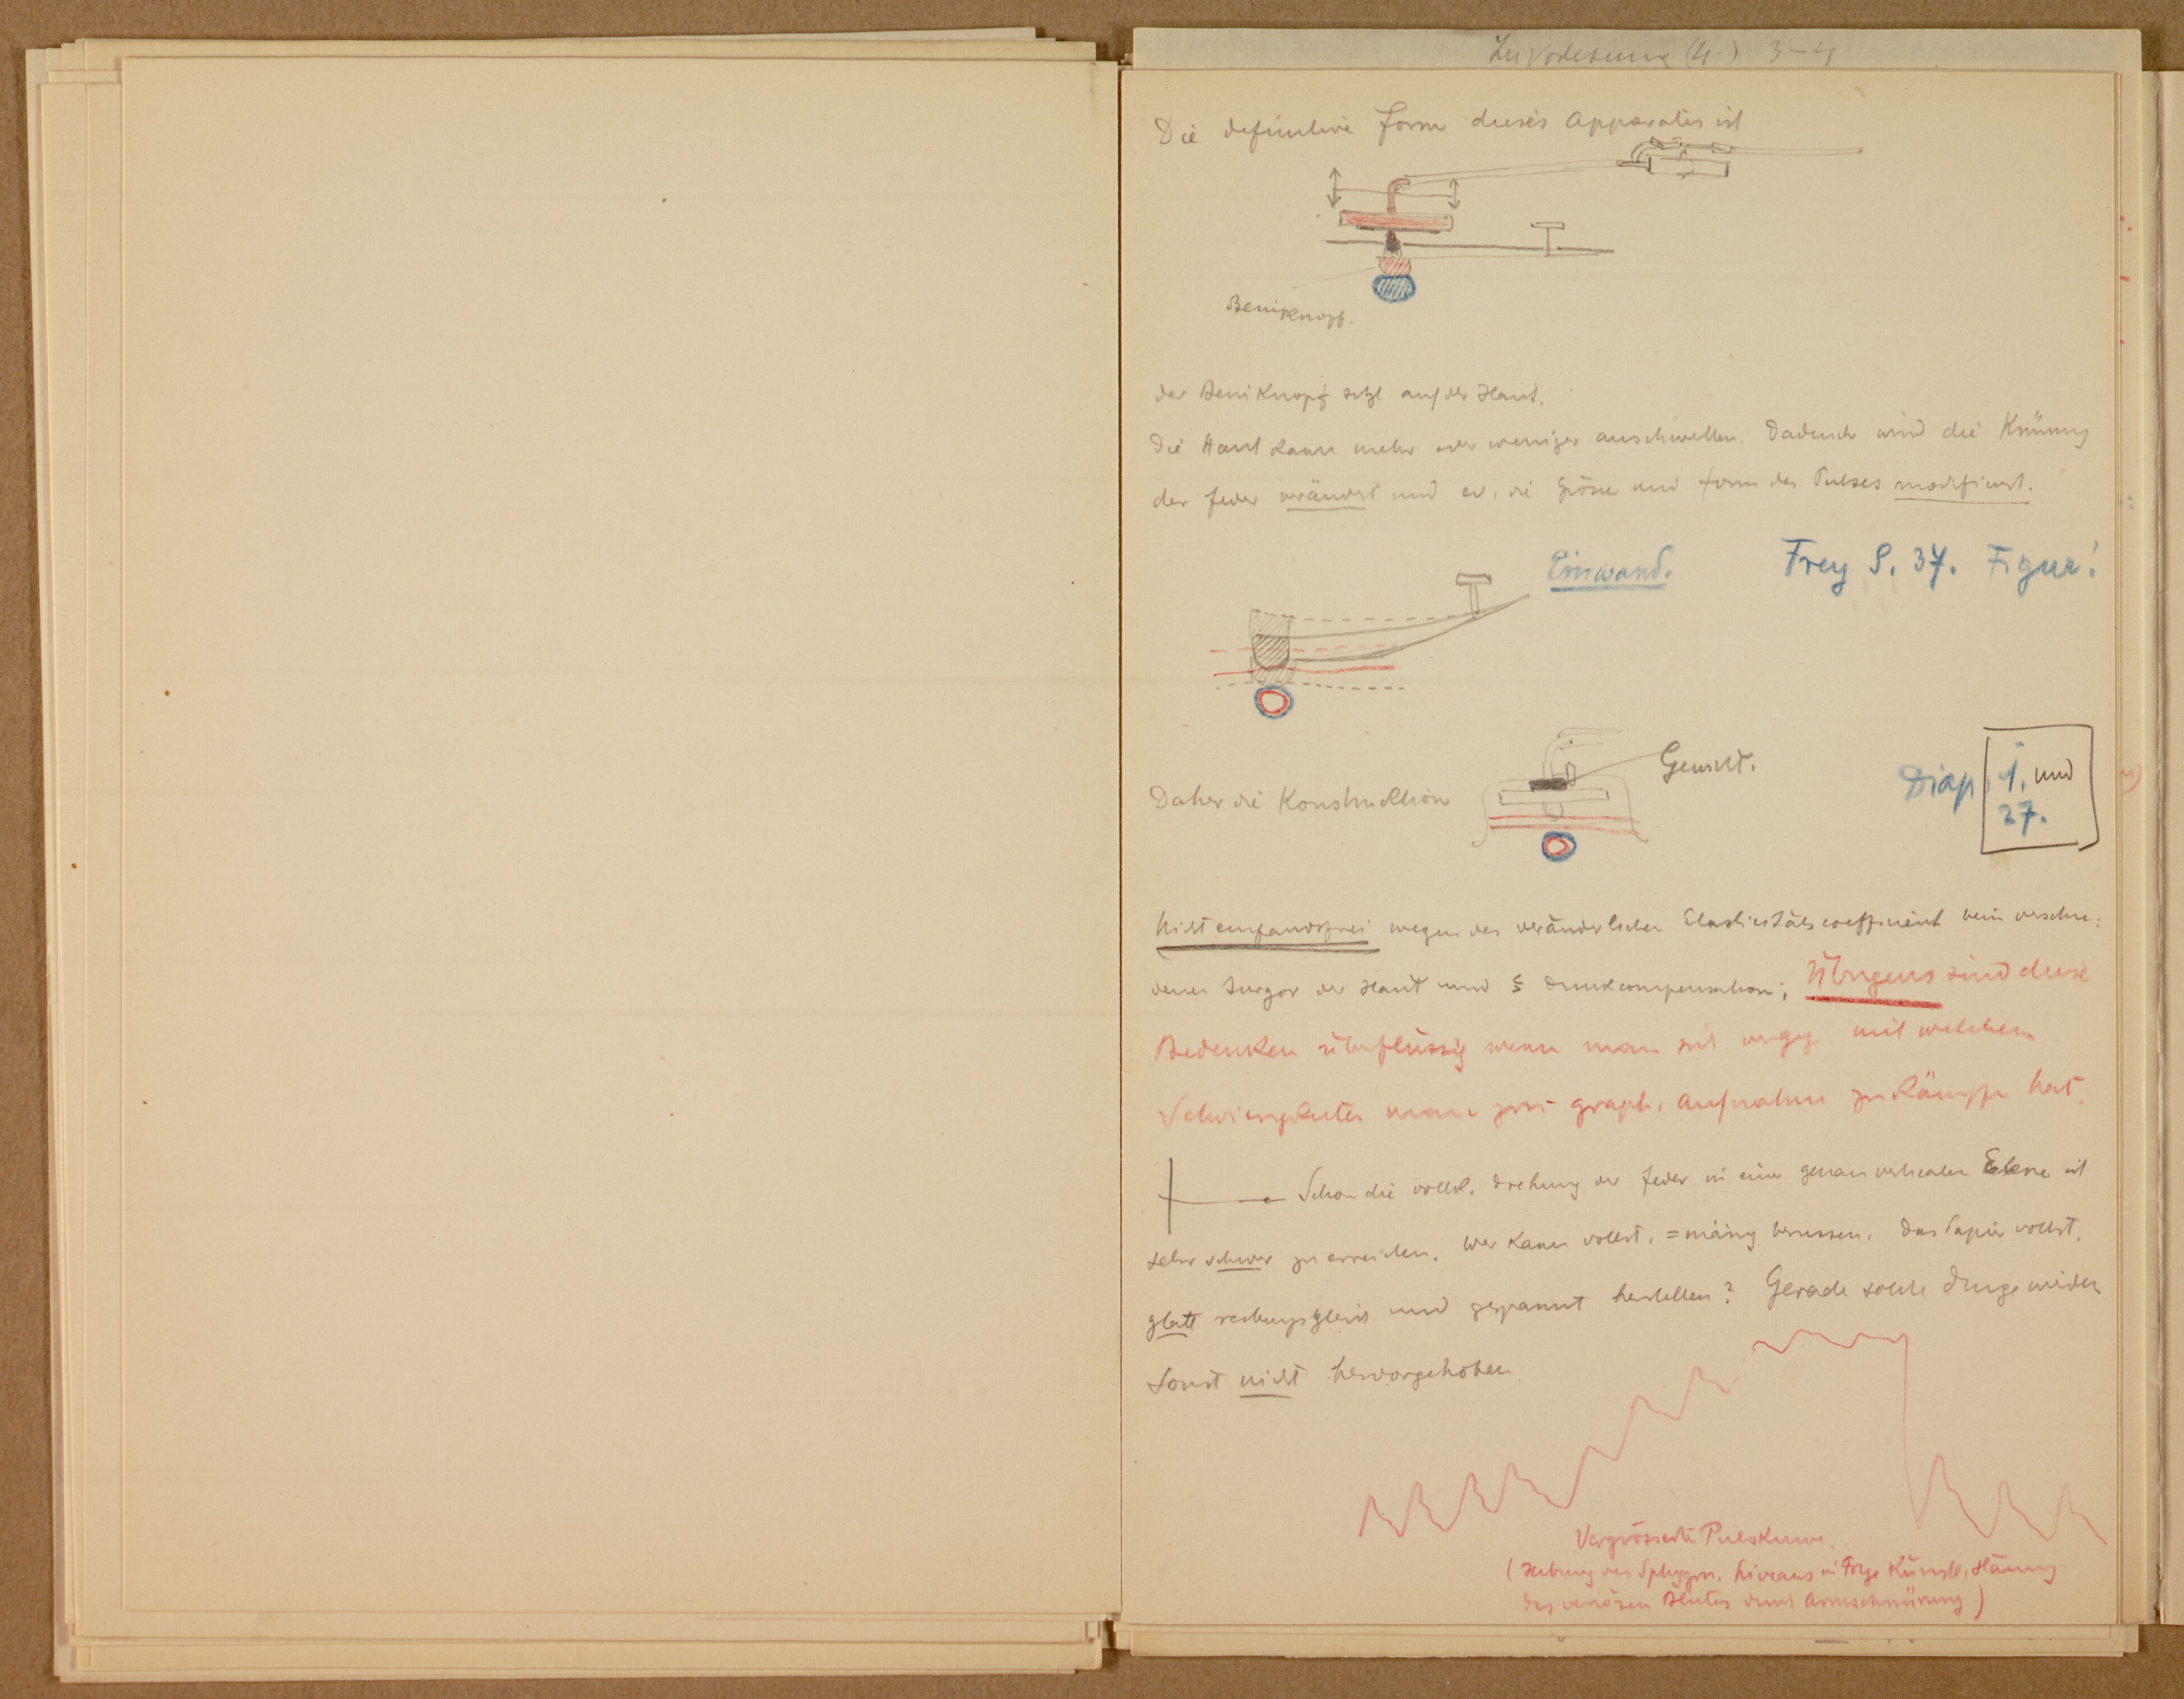 Zu Vorlesung (4.) 3–4
Die definitive Form dieses Apparates ist
Beinknopf.
der Beinknopf sitzt auf der Haut.
Die Haut kann mehr oder weniger anschwellen. Dadurch wird die Krümung
der Feder verändert und ev. die Grösse und Form des Pulses modificiert.
Einwand. Frey S. 37. Figur!
Daher die Konstruktion
Gewicht.
Diap. 1. und
27.
Nicht einwandsfrei wegen des veränderlichen Elasticitätscoefficient beim verschie:
denen Turgor der Haut und Druckcompensation; Übrigens sind diese
Bedenken überflüssig wenn man sich vergeg mit welchen
Schwierigkeiten man zur graph. Aufnahme zu kämpfen hat.
Schon die vollst. Drehung der Feder in eine genau verticalen Ebene ist
sehr schwer zu erreichen. Wer kann vollst. =mässig berussen. Das Papier vollst.
glatt und gespannt herstellen? Gerade solche Dinge werden
sonst nicht hervorgehoben.
Vergrösserte Pulskurve.
(Hebung des Sphygm. Niveaus in Folge Künstl. Stauung
des venösen Blutes durch Armschnürung)